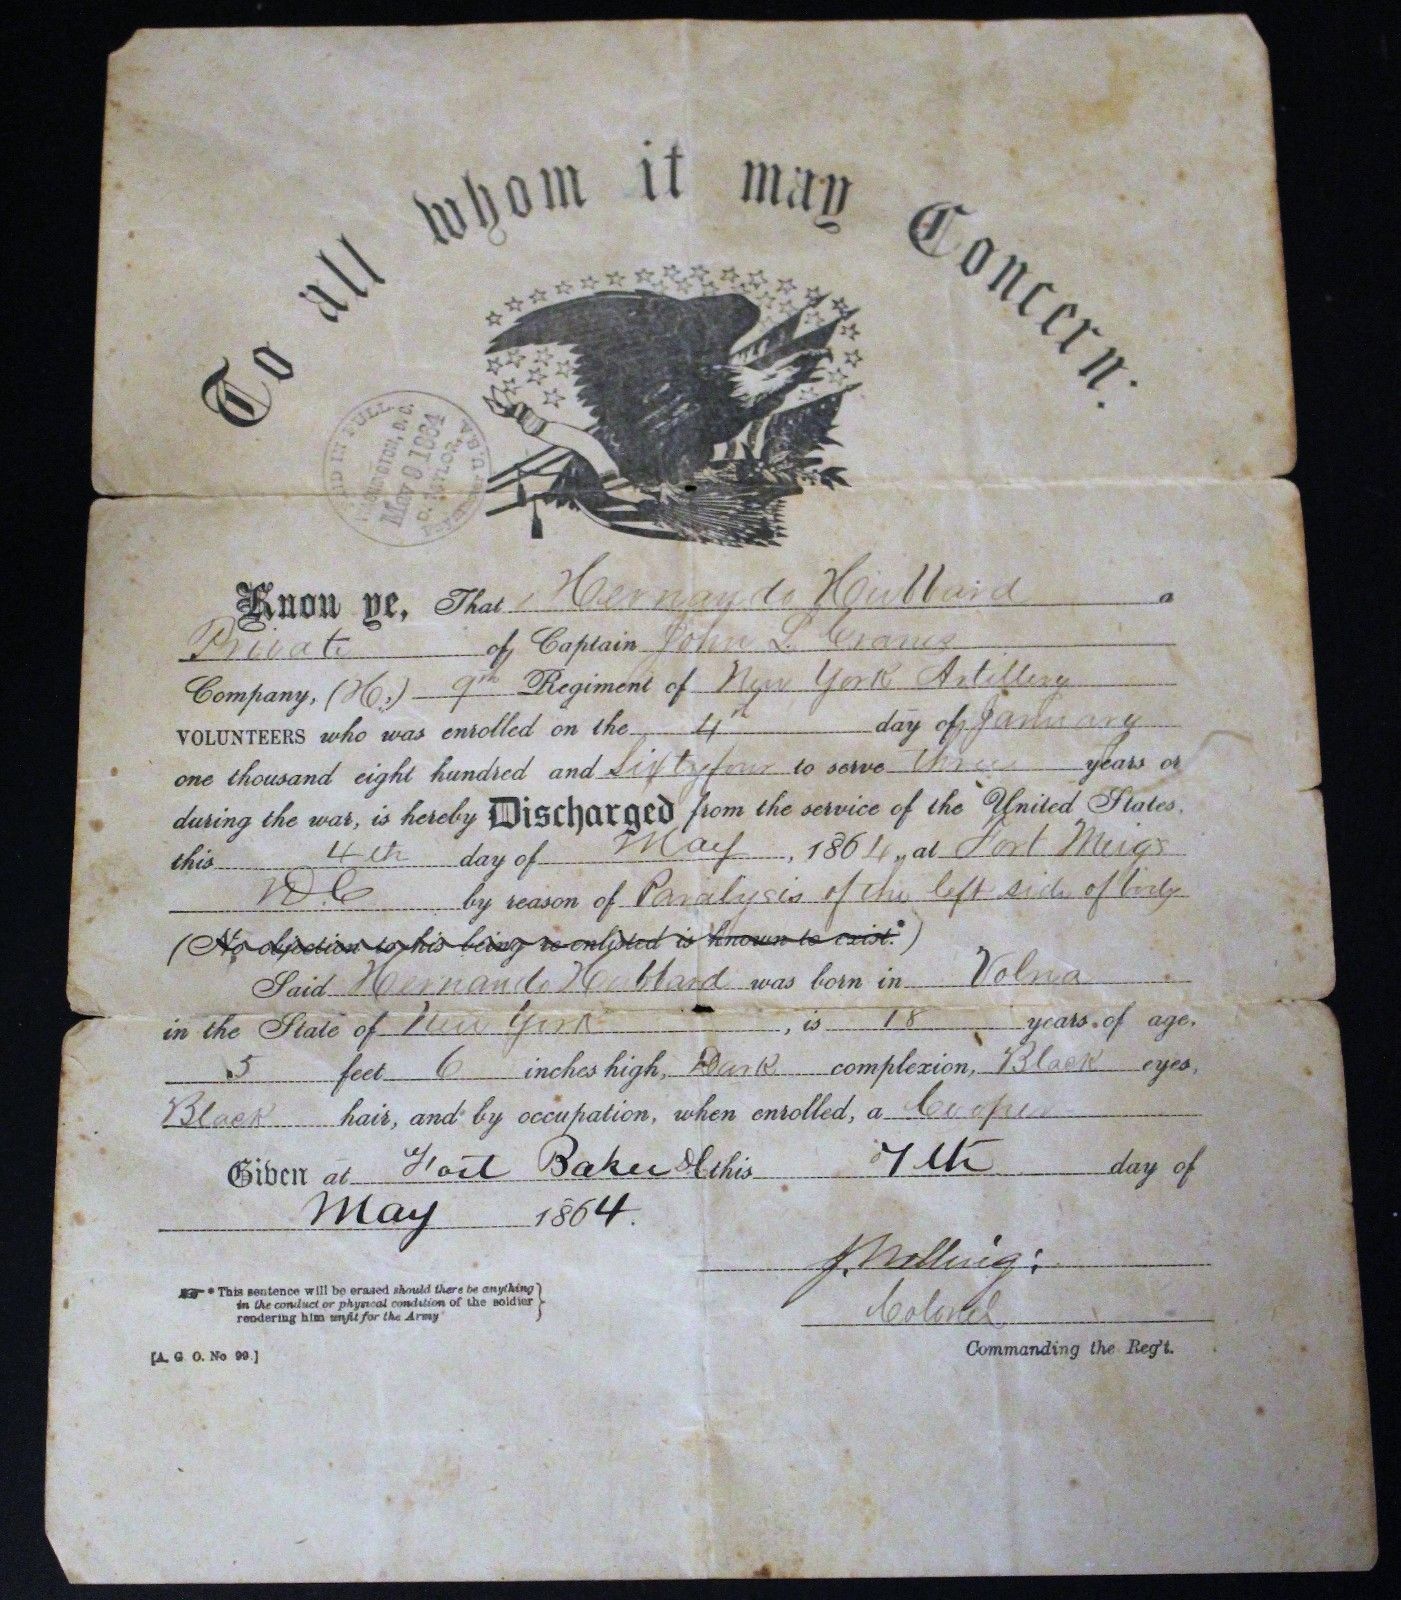 To all whom it may Concern:
PAID IN FULL
WASHINGTON, D.C.
May 9 1864
TAYLOR,
Paymaster U.S.A.
Know ye, That Hernando Hubbard a
Private of Captain John L. Crane's
Company, (H.) 9th Regiment of New York Artillery
VOLUNTEERS who was enrolled on the 4th day of January
one thousand eight hundred and Sixtyfour to serve three years or
during the war, is hereby Discharged from the service of the United States,
this 4th day of May, 1864, at Fort Meigs
D.C by reason of Paralysis of the left side of body
(No objection to his being re-enlisted is known to exist.*)
Said Hernando Hubbard was born in Volna
in the State of New York, is 18 years of age,
5 feet 6 inches high, Dark complexion, Black eyes,
Black hair, and by occupation, when enrolled, a Cooper
Given at Fort Baker DC this 7th day of
May 1864.
Colonel
Commanding the Reg't.
* This sentence will be erased should there be anything
in the conduct or physical condition of the soldier
rendering him unfit for the Army
[A. G. O. No 99.]